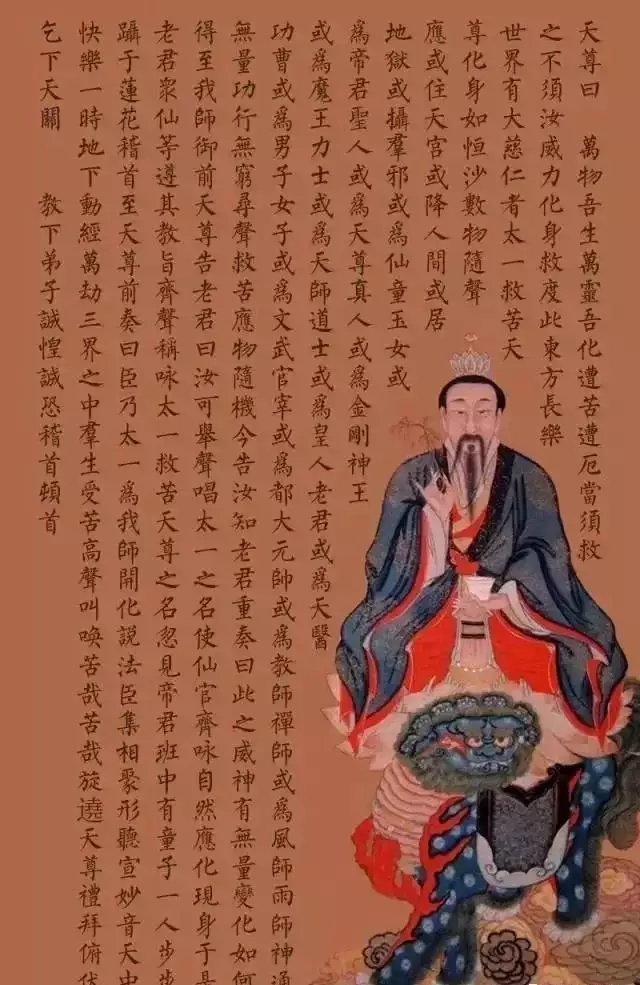 天尊曰　萬物吾生萬靈吾化遭苦遭厄當須救
之不須汝威力化身救度此東方長樂
世界有大慈仁者太一救苦天
尊化身如恒沙數物隨聲
應或住天宮或降人間或居
地獄或攝羣邪或爲仙童玉女或
爲帝君聖人或爲天尊真人或爲金剛神王
或爲魔王力士或爲天師道士或爲皇人老君或爲天醫
功曹或爲男子女子或爲文武官宰或爲都大元帥或爲教師禪師或爲風師雨師神通
無量功行無窮尋聲救苦應物隨機今告汝知老君重奏曰此之威神有無量變化如何
得至我師御前天尊告老君曰汝可舉聲唱太一之名使仙官齊咏自然應化現身于是
老君衆仙等遵其教旨齊聲稱咏太一救苦天尊之名忽見帝君班中有童子一人步步
躡于蓮花稽首至天尊前奏曰臣乃太一爲我師開化説法臣集相聚形聽宣妙音天中
快樂一時地下動經萬劫三界之中羣生受苦高聲叫唤苦哉苦哉旋遶天尊禮拜俯伏
乞下天關　教下弟子誠惶誠恐稽首頓首